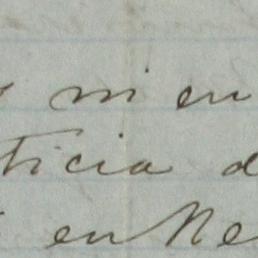 ni en
ticia d
en Ne